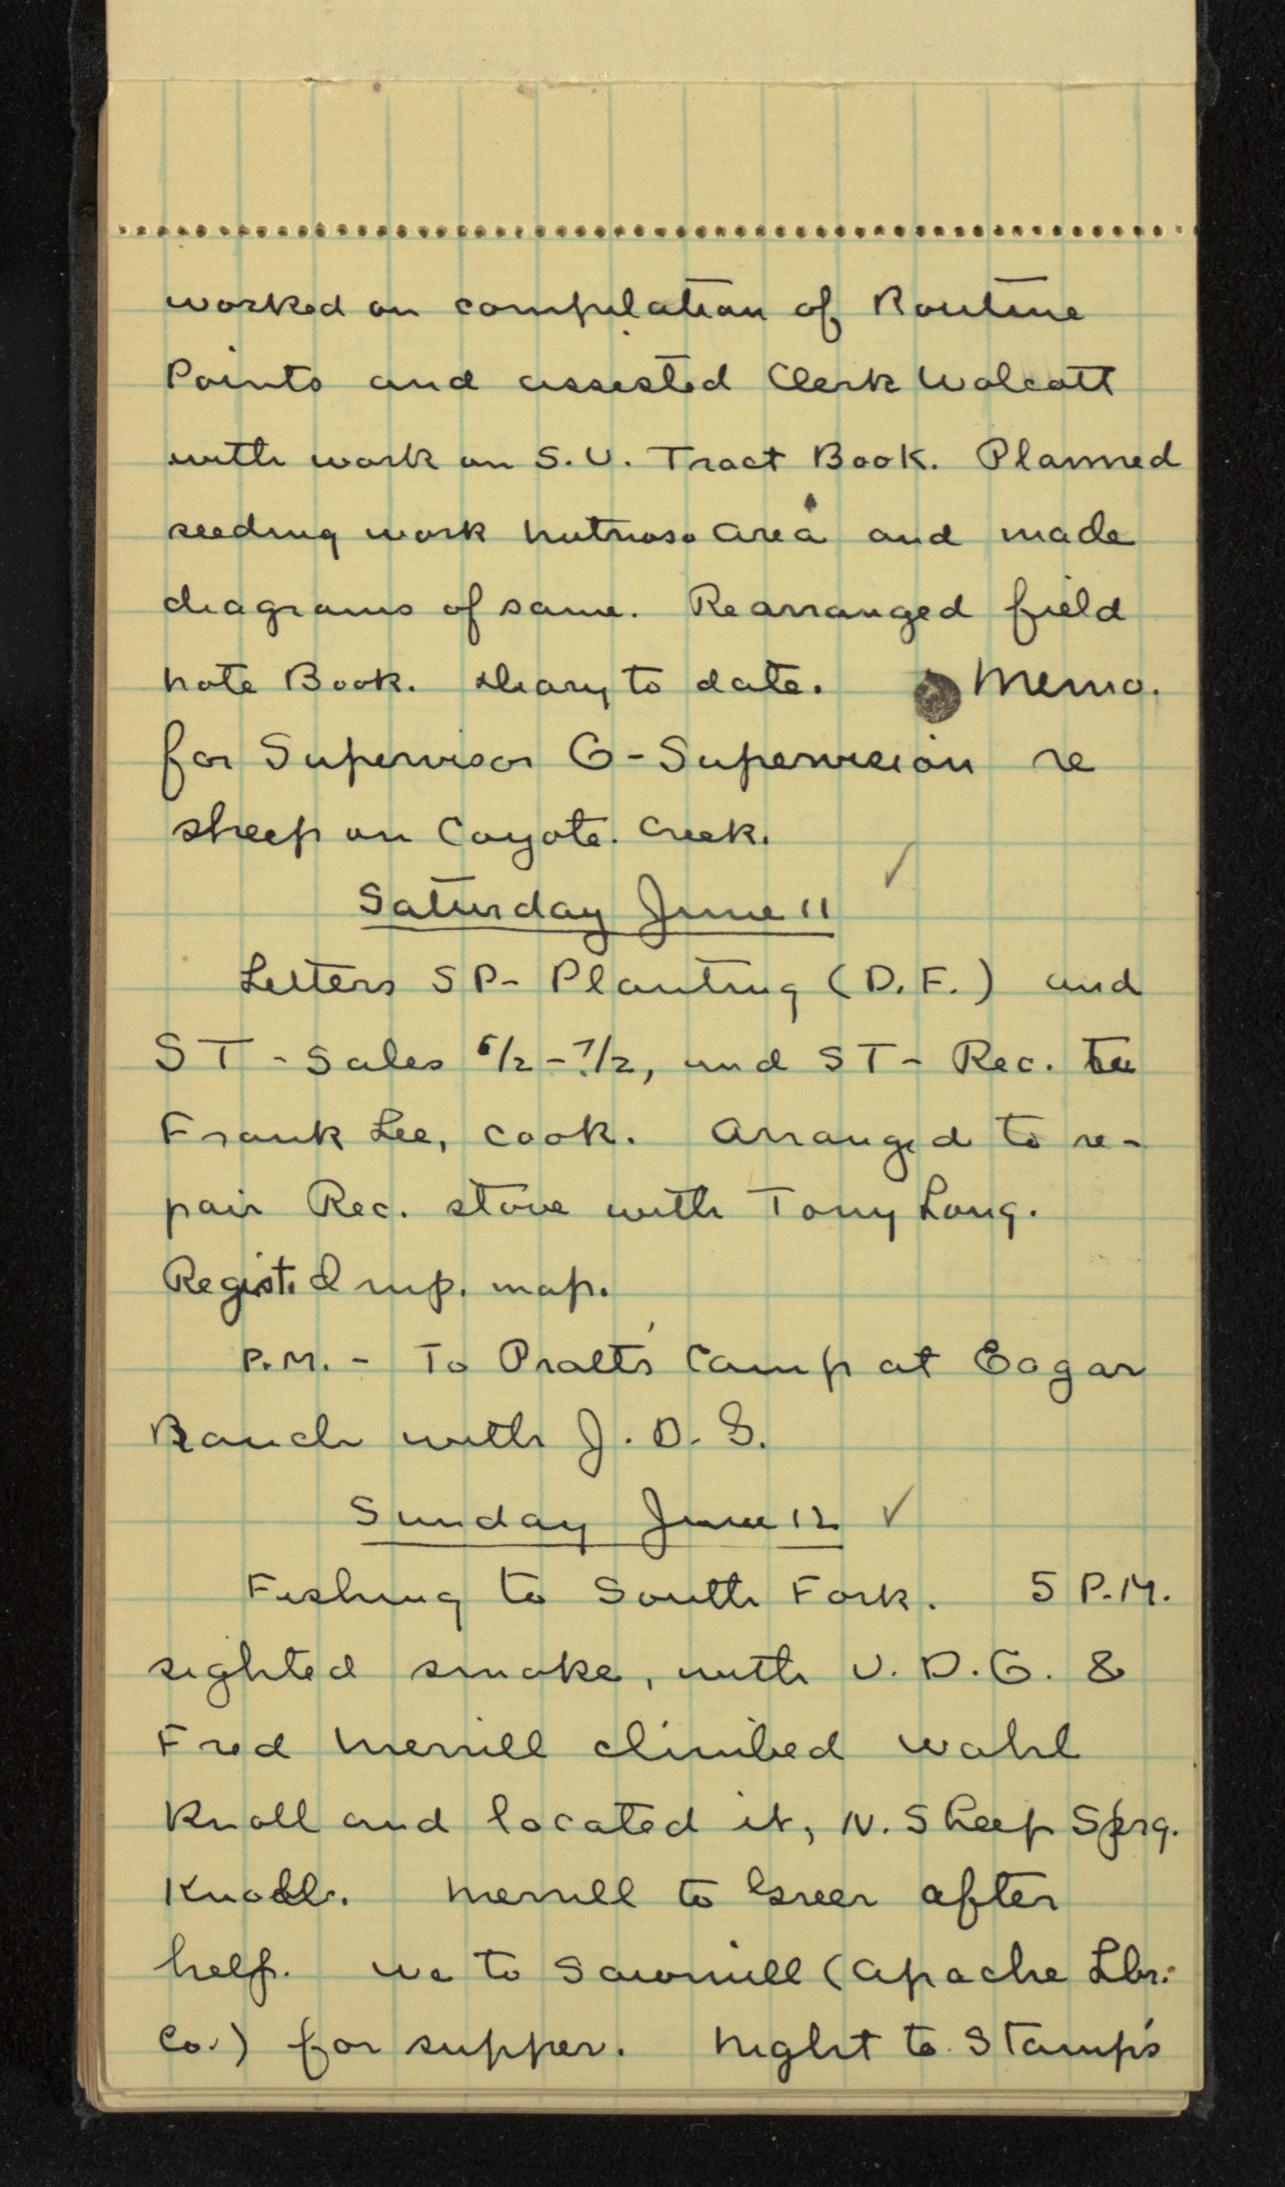 worked on compilation of Routine
Points and assisted Clerk Wolcott
with work on S.U. Tract Book. Planned
seeding work Nutrioso area and made
diagrams of same. Rearranged field
note Book. Diary to date. Memo.
for Supervisor G-Supervision re
sheep on Coyote. Creek.
Saturday June 11
Letters SP- Planting (D.F.) and
ST - Sales 6/2 - 7/2, and ST - Rec. to
Frank Lee, cook. Arranged to re-
pair Rec. stove with Tony Long.
Registed imp. map.
P.M. - To Pratt's Camp at Eagar
Ranch with J. D. G.
Sunday June 12
Fishing to South Fork. 5 P.M.
sighted smoke, with J. D. G. &
Fred Merrill climbed Wahl
Knoll and located it, N. Sheep Sprg.
Knoll. Merrill to Greer after
help. We to Sawmill (Apache Lbr.
Co.) for supper. Night to Stamp's